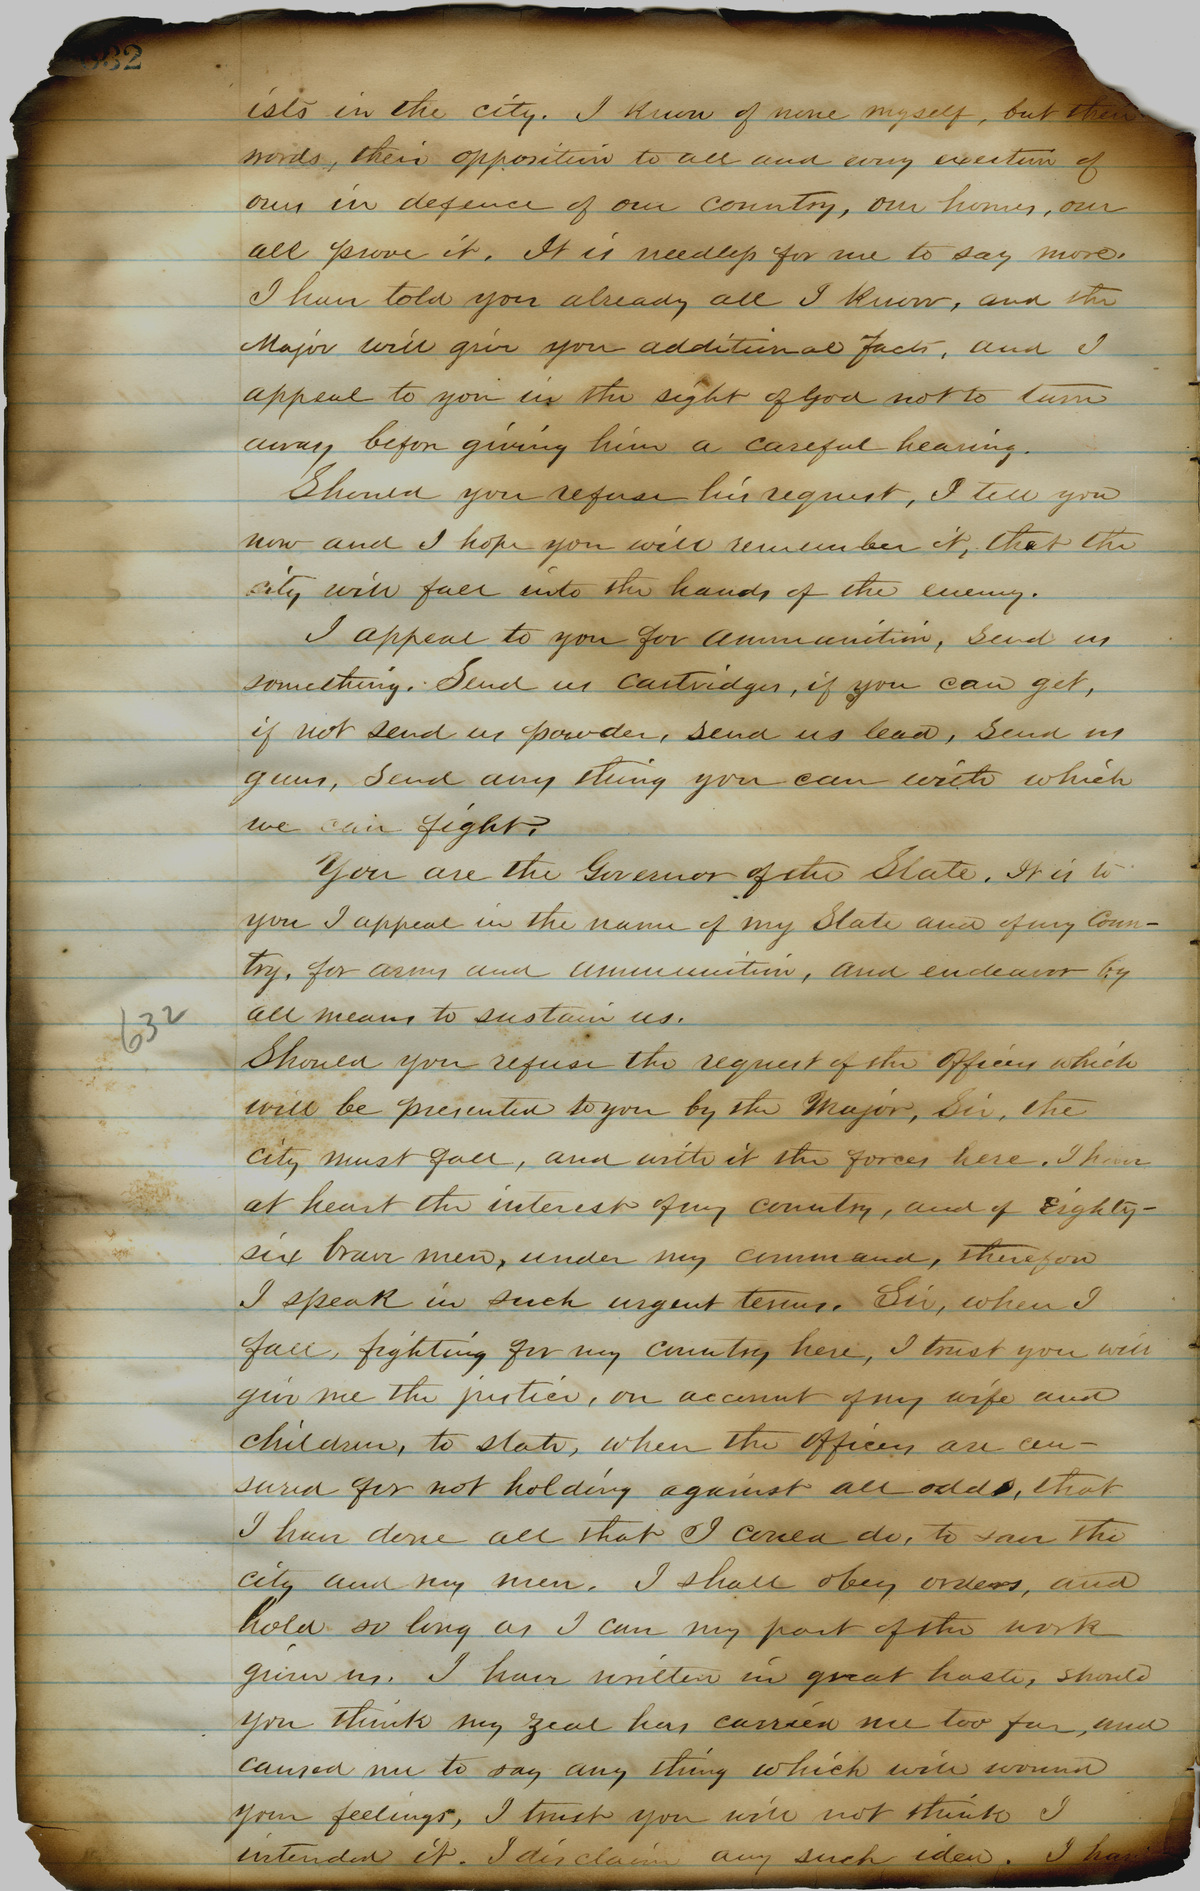 632
ists in the city. I know of none myself, but their
words, their opposition to all and every exertion of
ours in defence of our country, our homes, our
all prove it. It is needless for me to say more.
I have told you already all I know, and the
Major will give you additional facts, and I
appeal to you in the sight of God not to turn
away before giving him a careful hearing.
Should you refuse his request, I tell you
now and I hope you will remember it, that the
city will fall into the hands of the enemy.
I appeal to you for ammunition, send us
something. Send us cartridges, if you can get,
if not send us powder, send us lead, send us
guns, send any thing you can with which
we can fight.
You are the Governor of the State. It is to
you I appeal in the name of my State and of my Coun-
try, for arms and ammunition, and endeavor by
all means to sustain us.
632
Should you refuse the request of the Officers which
will be presented to you by the Major, Sir, the
city must fall, and with it the forces here. I have
at heart the interest of my country, and of Eighty-
six brave men, under my command, therefore
I speak in such urgent terms. Sir, when I
fall, fighting for my country here, I trust you will
give me the justice, on account of my wife and
children, to state, when the Officers are cen-
sured for not holding against all odds, that
I have done all that I could do, to save the
city and my men. I shall obey orders, and
hold so long as I can my part of the work
given us. I have written in great haste, should
you think my zeal has carried me too far, and
caused me to say any thing which will wound
your feelings, I trust you will not think I
intended it. I disclaim any such idea. I have